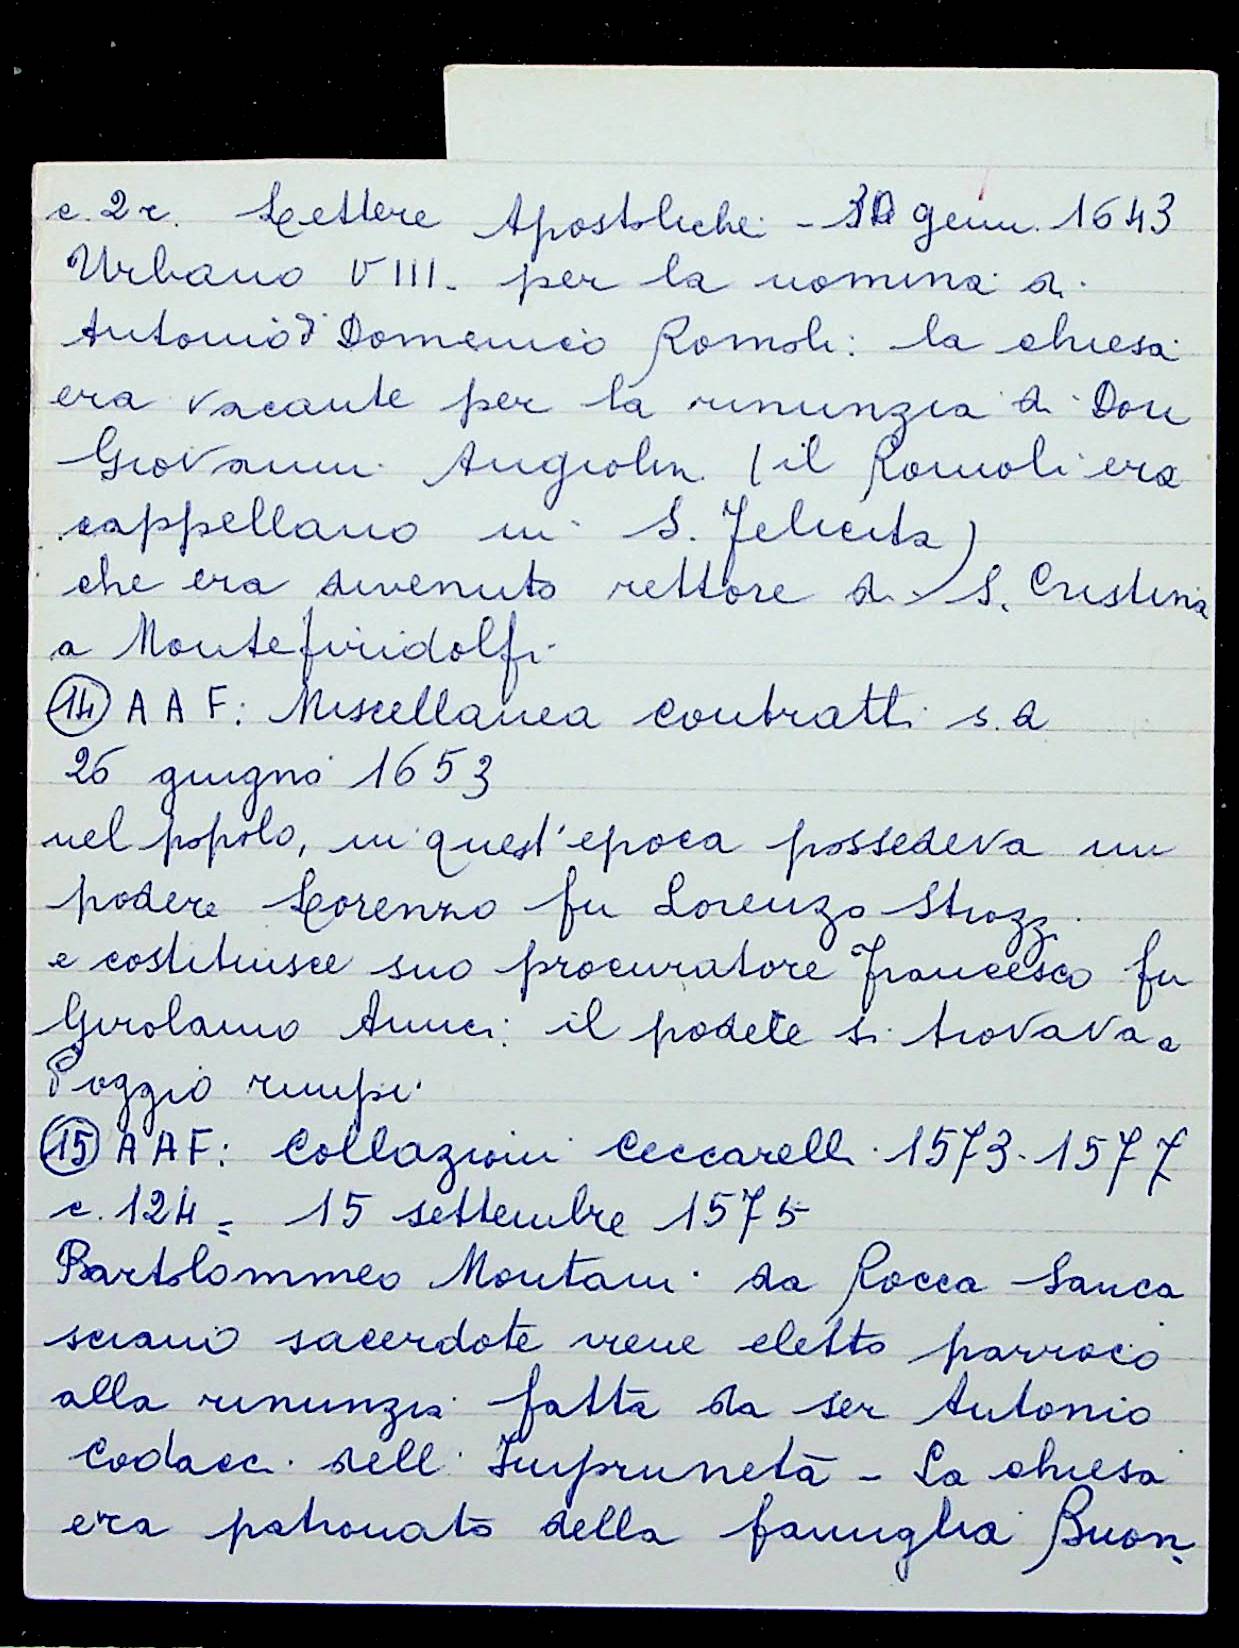 c. 2 r. Lettere Apostoliche - genn. 1643
Urbano VIII. per la nomina di
Antonio d Domenico Romoli: la chiesa
era vacante per la rinunzia di Don
Giovanni Angiolin (il Romoli era
cappellano in S. Felicita)
che era divenuto rettore di S. Cristina
a Montefiridolfi
14 A A F: Miscellanea contratti s. d
26 giugno 1653
nel popolo, in quest'epoca possedeva un
podere Lorenzo fu Lorenzo Strozzi
e costituisce suo procuratore Francesco fu
Girolamo il podere si trovava a
Poggio
15 A A F: Collazioni Ceccarelli 1573-1577
c. 124 = 15 settembre 1575
Bartolommeo Montani da Rocca Sanca
sciano sacerdote viene eletto parroco
alla rinunzia fatta da ser Antonio
Codacci dell' Impruneta - La chiesa
era patronato della famiglia Buon